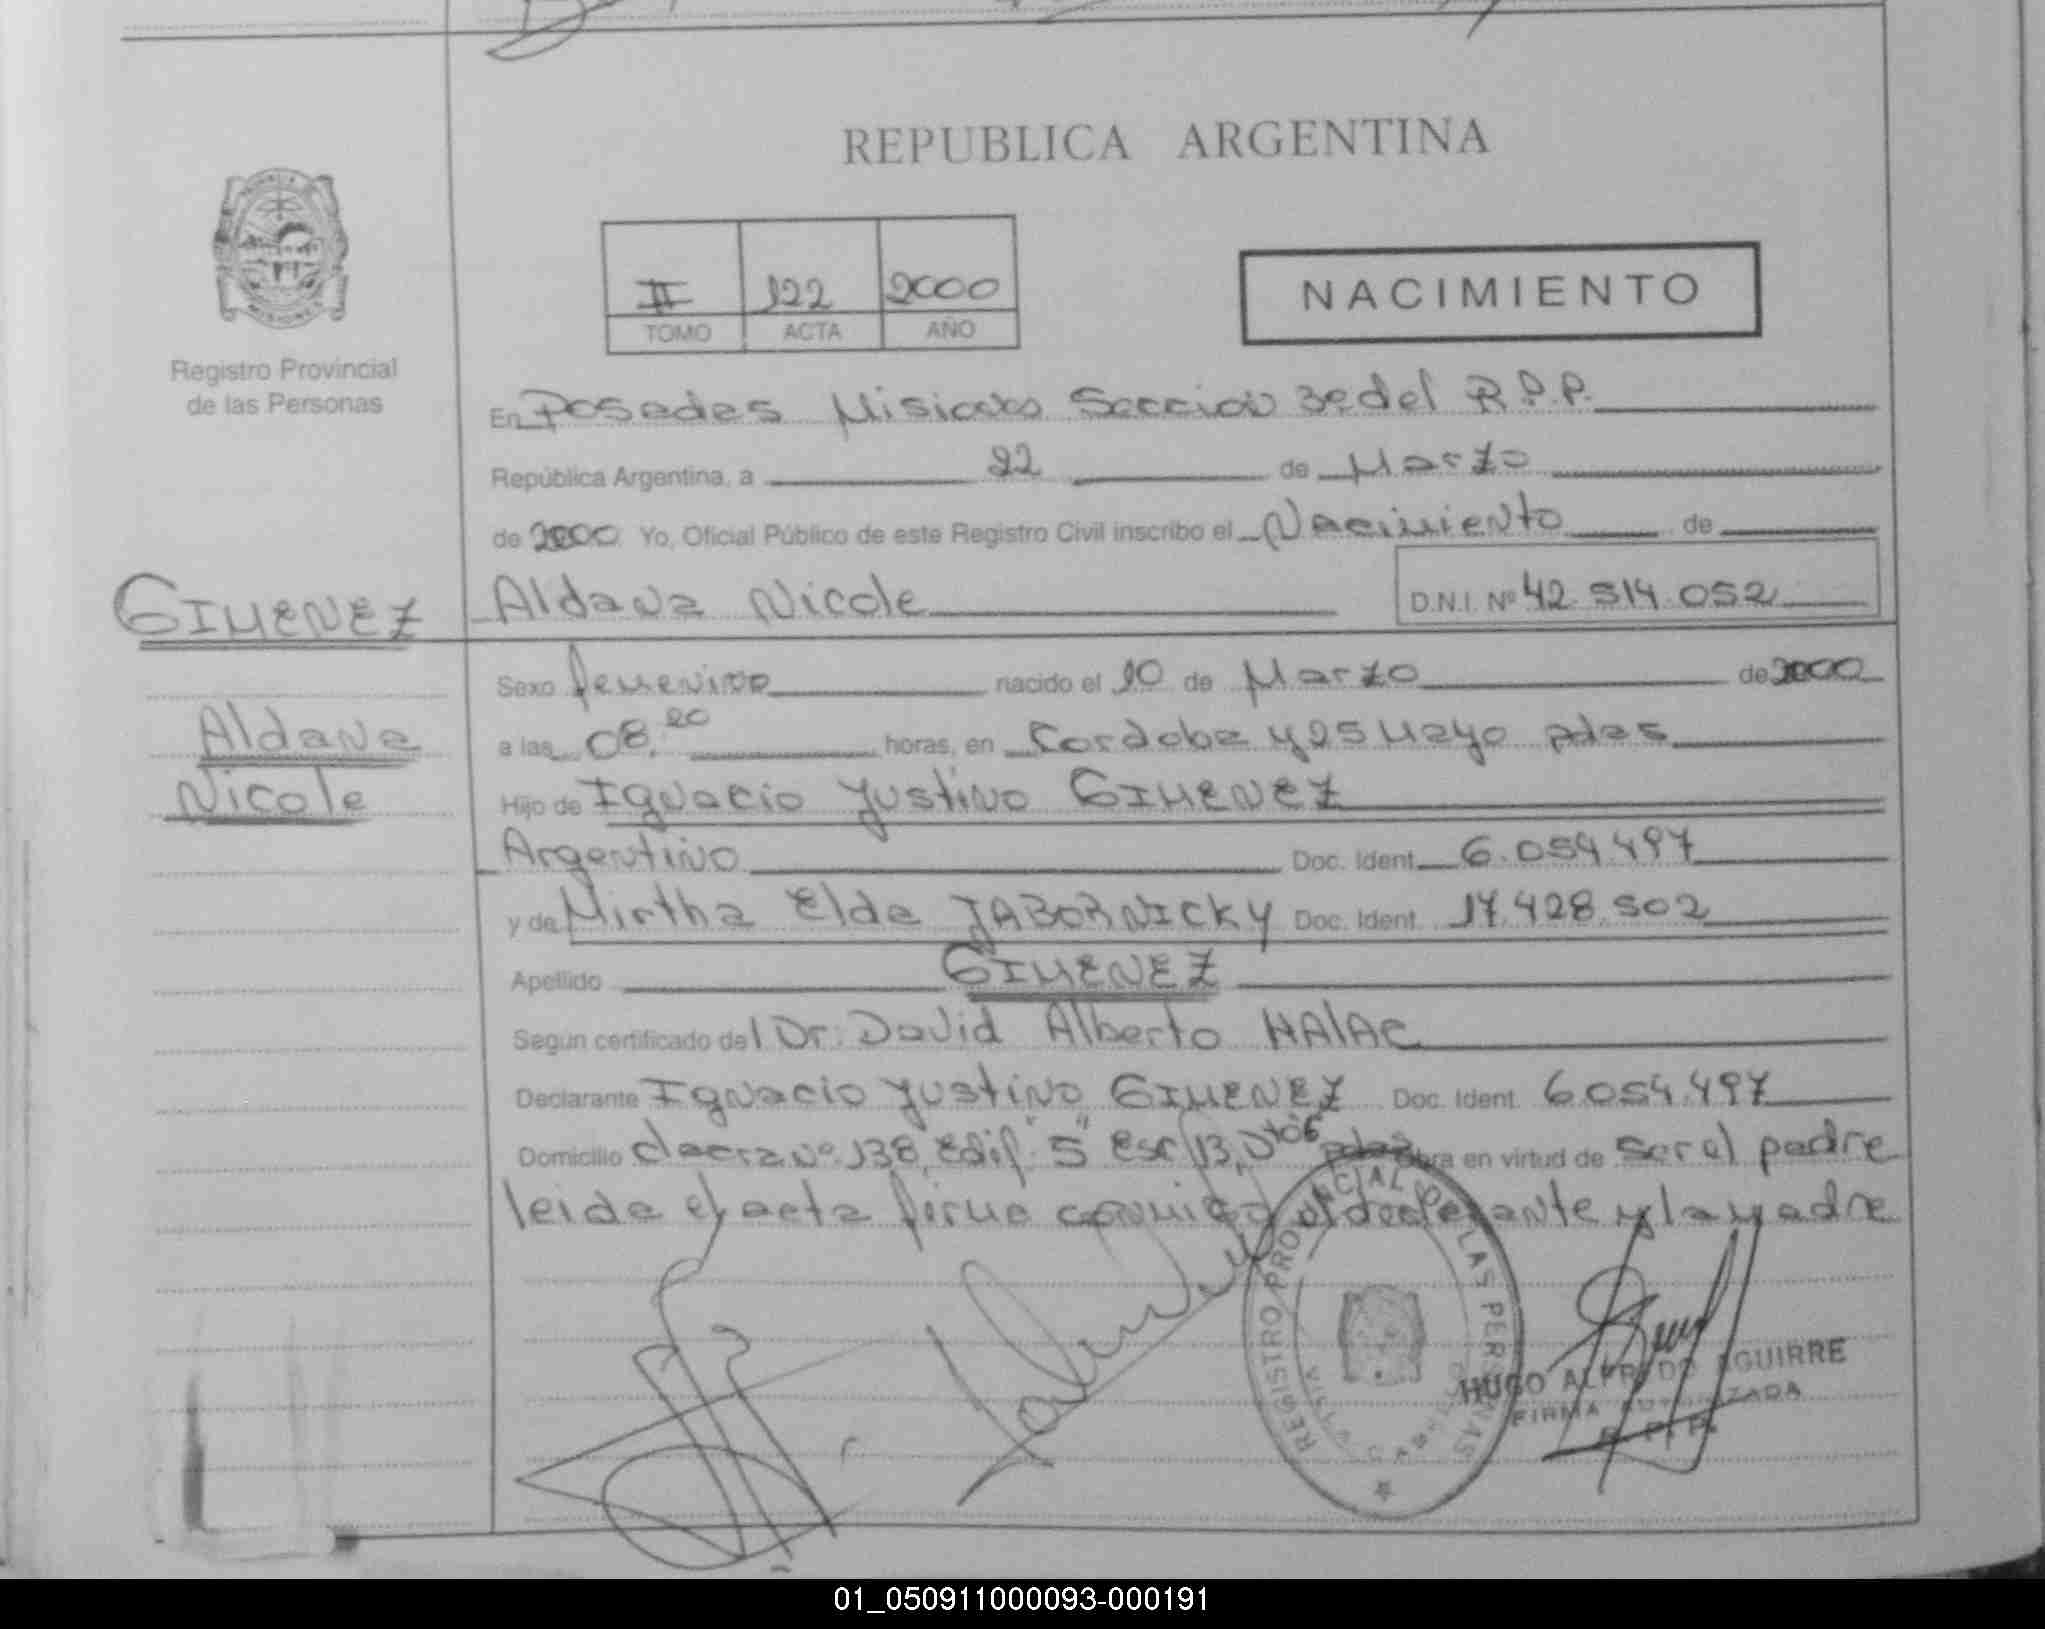 REPUBLICA ARGENTINA
II 122 2000
TOMO ACTA AÑO
NACIMIENTO
Registro Provincial
de las Personas
En Posadas Misiones Seccion 3e del R.P.P.
República Argentina, a 22 de Marzo
de 2000 Yo, Oficial Público de este Registro Civil inscribo el Nacimiento de
GIMENEZ
Aldana Nicole
Aldana Nicole D.N.I. Nº 42.514.052
Sexo femenino nacido el 10 de Marzo de 2000
a las 08.20 horas, en Cordoba y 25 Mayo pdas
Hijo de Ignacio Justino GIMENEZ
Argentino Doc. Ident. 6.054.497
y de Mirtha Elda JABORNICKY Doc. Ident. 17.428.502
Apellido GIMENEZ
Según certificado del Dr. David Alberto HAlAC
Declarante Ignacio Justino GIMENEZ Doc. Ident. 6.054.497
Domicilio chacra Nº 138, Edif "5" Esc 13, obra en virtud de ser el padre
leida el acta firma conmigo el declarante y la madre
REGISTRO PROVINCIAL DE LAS PERSONAS
HUGO ALFREDO AGUIRRE
FIRMA AUTORIZADA
R. P. P.
01_050911000093-000191